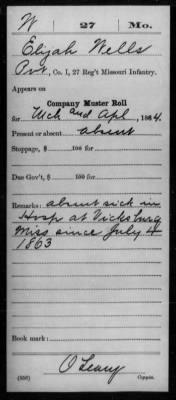 W 27 Mo.
Elijah Wells
Pvt., Co. I, 27 Reg't Missouri Infantry.
Appears on
Company Muster Roll
for Mch and Apl, 1864.
Present or absent absent
Stoppage, $ 100 for
Due Gov't, $ 100 for
Remarks: absent sick in
Hosp at Vicksburg
Miss since July 4
1863
Book mark:
O'Leary
(358) Copyist.